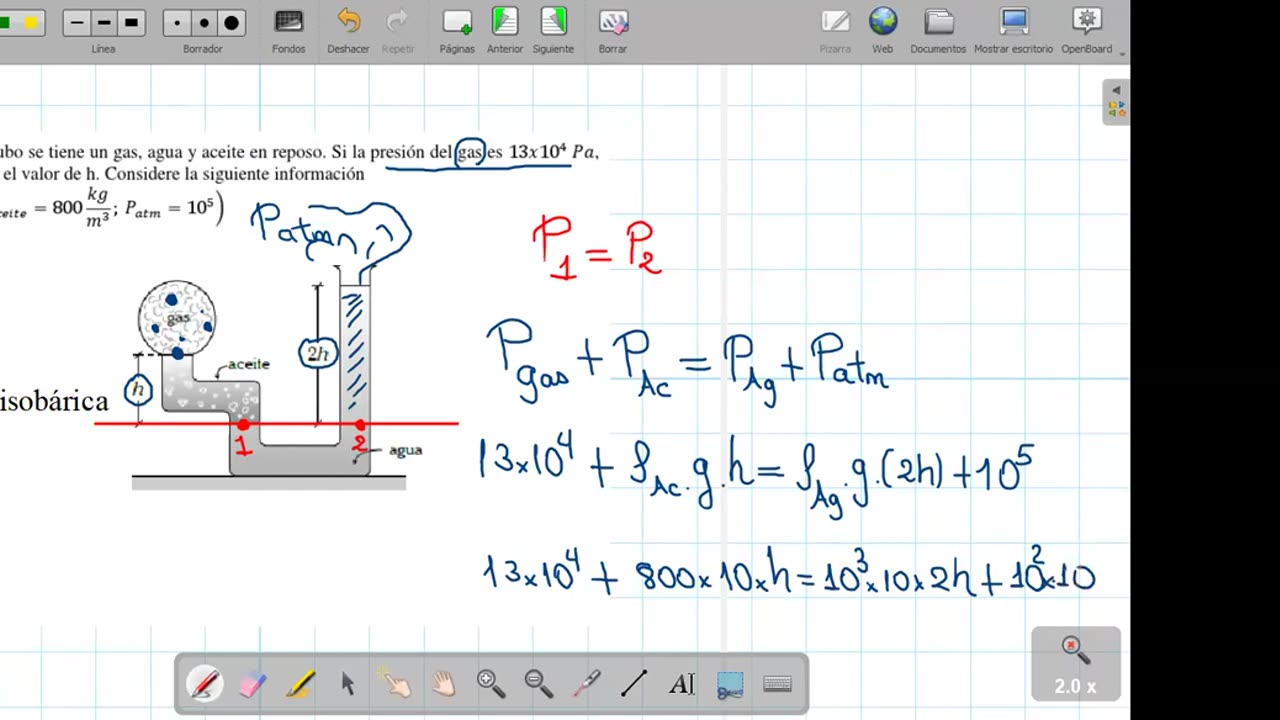 Línea
Borrador
Fondos
Deshacer
Repetir
Páginas
Anterior
Siguiente
Borrar
Pizarra
Web
Documentos
Mostrar escritorio
OpenBoard
ubo se tiene un gas, agua y aceite en reposo. Si la presión del gas es 13x10⁴ Pa,
el valor de h. Considere la siguiente información
ceite = 800 kg/m³; P_atm = 10⁵)
Patm
P₁ = P₂
gas
2h
aceite
h
isobárica
1
2
agua
P_gas + P_Ac = P_Ag + P_atm
13×10⁴ + ρ_Ac.g.h = ρ_Ag.g.(2h) + 10⁵
13×10⁴ + 800×10×h = 10³×10×2h + 10²×10
AI
2.0 x